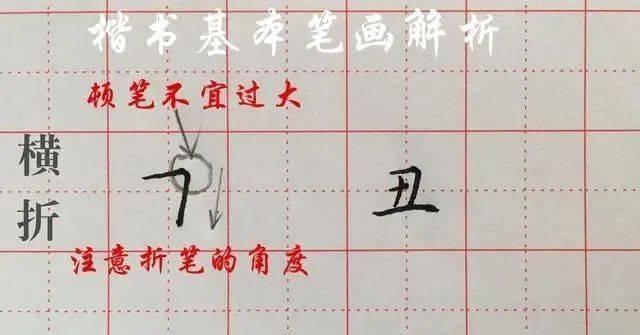 楷书基本笔画解析
顿笔不宜过大
横折
丑
注意折笔的角度